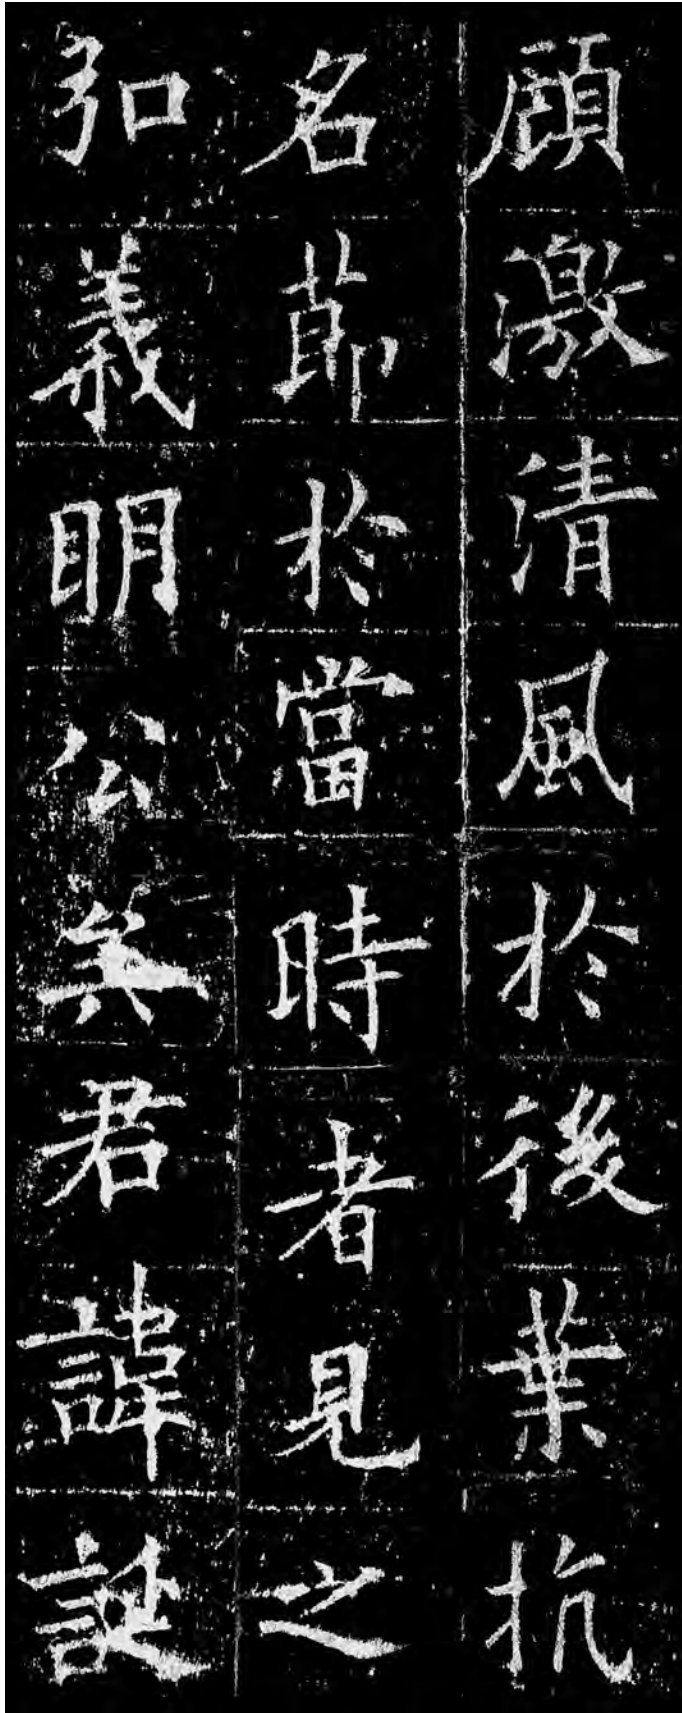 顧激清風於後葉抗
名節於當時者見之
弘義明公矣君諱誕